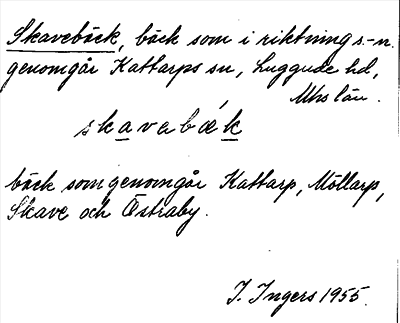 Skavebäck, bäck som i riktning s.-n.
genomgår Kattarps sn, Luggude hd,
Mhs län.
skavebǽk
bäck som genomgår Kattarp, Möllarp,
Skave och Östraby.
I. Ingers 1955.